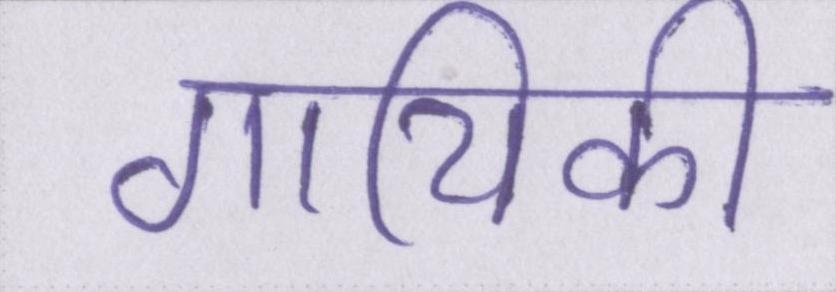 गायिकी